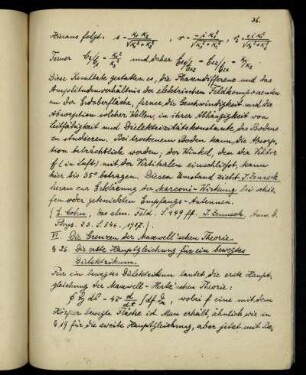 36.
Hieraus folgt: s =
Ferner und daher
Diese Resultate gestatten es, die Phasendifferenz und das
Amplitudenverhältnis der elektrischen Feldkomponenten
an der Erdoberfläche, ferner die Geschwindigkeit und die
Absorption solcher Wellen, in ihrer Abhängigkeit von
Leitfähigkeit und Dielektrizitätskonstante des Bodens
zu studieren. Bei trockenem Boden kann die Absorp-
tion beträchtlich werden. Der Winkel, den der Vektor
f (in Luft) mit der Vertikalen einschließt, kann
hier bis 35° betragen. Diesen Umstand zieht J. Zenneck
heran zur Erklärung der Marconi-Wirkung bei schie-
fen oder geknickten Empfangs-Antennen.
(E. Cohn, Das elm. Feld. S. 449 ff. J. Zenneck, Ann. d.
Phys. 23. S. 846. 1907.)
VI. Die Grenzen der Maxwell'schen Theorie
§ 26. Die erste Hauptgleichung für ein bewegtes
Dielektrikum.
Für ein bewegtes Dielektrikum lautet die erste Haupt-
gleichung der Maxwell-Hertz'schen Theorie:
wobei f eine mit dem
Körper bewegte Fläche ist. Man erhält, ähnlich wie in
§ 19 für die zweite Hauptgleichung, aber jetzt mit